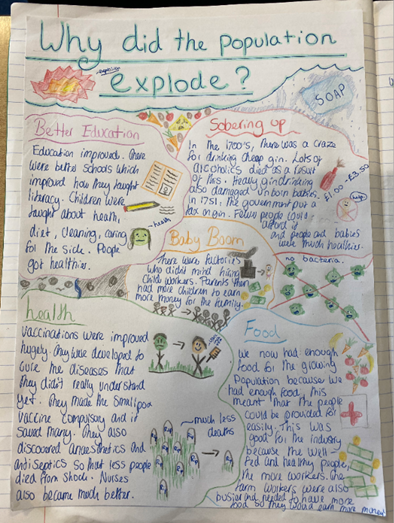 Why did the population
explode?
SOAP
Better Education
Education improved. There
were better schools which
improved how they taught
literacy. Children were
taught about health,
diet, cleaning, caring
for the sick. People
got healthier.
Sobering up
In the 1700's, there was a craze
for drinking cheap gin. Lots of
alcoholics died as a result
of this. Heavy gin drinking
also damaged unborn babies.
In 1751, the government put a
tax on gin. Fewer people could
afford it
and people and babies
were much healthier.
£1.00 → £3.50
Baby Boom
There were factories
who didn't mind hiring
child workers. Parents then
had more children to earn
more money for the family.
no bacteria.
health
Vaccinations were improved
hugely. They were developed to
cure the diseases that
they didn't really understand
yet. They made the Smallpox
vaccine compulsory and it
saved many. They also
discovered anaesthetics and
antiseptics so that less people
died from shock. Nurses
also became much better.
much less
deaths
Food
We now had enough
food for the growing
Population because we
had enough food, this
meant that the people
could be provided for
easily. This was
good for the industry
because the well-
fed and healthy people,
the more workers. The
farm workers were also
busier and needed to have more
food so they could earn more money